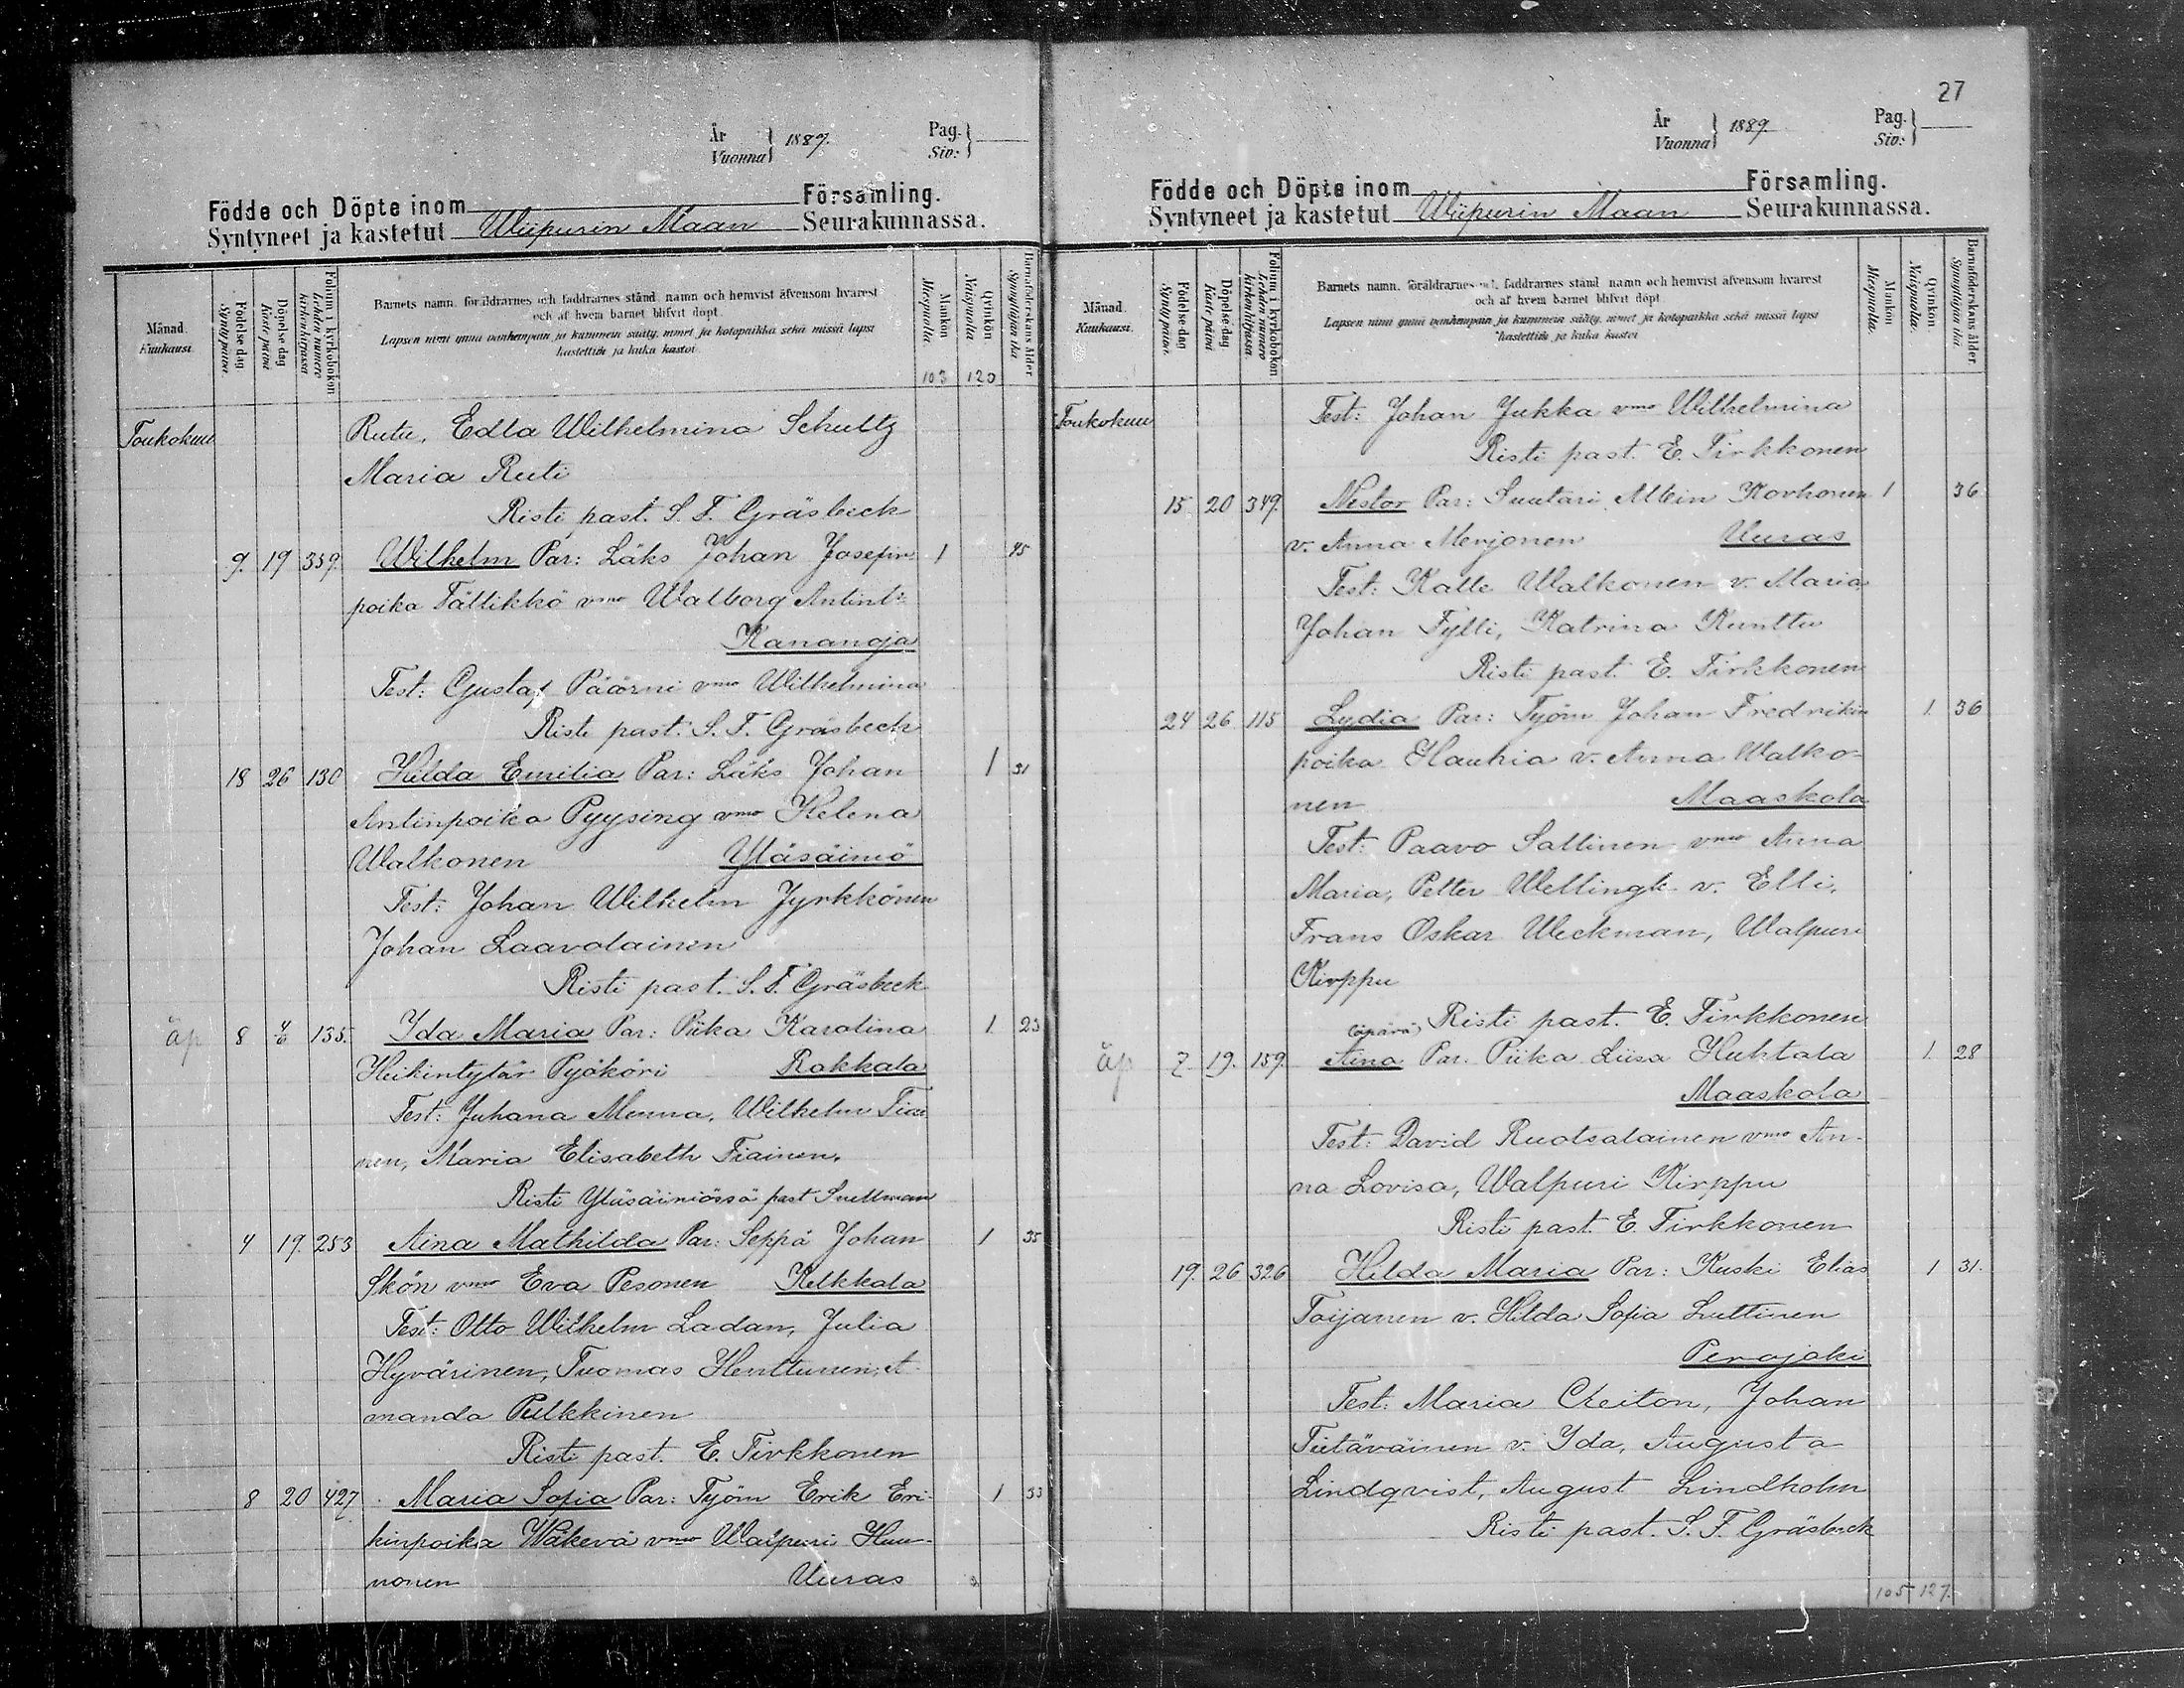 År
Vuonna } 1889.
Pag.
Siv: }
Födde och Döpte inom Församling.
Syntyneet ja kastetut Wiipurin Maan Seurakunnassa.
Månad.
Kuukausi.
Födelse dag
Synty päivä.
Döpelse dag
Kaste päivä
Folium i kyrkoboken
Lehden numero
kirkonkirjassa
Barnets namn, föräldrarnes och faddrarnes stånd, namn och hemvist äfvensom hvarest
och af hvem barnet blifvit döpt.
Lapsen nimi ynnä vanhempain ja kummein sääty, nimet ja kotopaikka sekä missä lapsi
kastettiin ja kuka kastoi
Mankön
Miespuolia.
Qvinkön
Naispuolia
Barnaföderskans ålder
Synnyttäjän ikä
103 120
Toukokuu Rutu, Edla Wilhelmina Schultz
Maria Ruti
Risti past. S. F. Gräsbeck
9. 19 359. Wilhelm Par: Läks Johan Josefin 1 45
poika Tällikkö vmo Walborg Antint:
Kananoja
Test: Gustaf Päärni vmo Wilhelmina
Risti past. S. F. Gräsbeck
18 26 130 Hilda Emilia Par: Läks Johan 1 31
Antinpoika Pyysing vmo Helena
Walkonen Yläsäiniö
Test: Johan Wilhelm Jyrkkönen
Johan Laavolainen
Risti past. S. F. Gräsbeck
äp 8 135. Ida Maria Par: Piika Karolina 1. 23
Heikintytär Pyököri Rakkala
Test: Juhana Menna, Wilhelm Tiai
nen, Maria Elisabeth Tiainen.
Risti Yläsäiniössä past Snellman
4 19. 253 Aina Mathilda Par: Seppä Johan 1 35
Skön vmo Eva Pesonen Kelkkala
Test: Otto Wilhelm Ladan, Julia
Hyvärinen, Tuomas Henttunen, A
manda Pulkkinen
Risti past. E. Tirkkonen
8 20 427 Maria Sofia Par: Työm Erik Eri- 1 33
kinpoika Wäkevä vmo Walpuri Huu-
nonen Uuras
27
År
Vuonna } 1889.
Pag.
Siv: }
Födde och Döpte inom Församling.
Syntyneet ja kastetut Wiipurin Maan Seurakunnassa.
Månad.
Kuukausi.
Födelse dag
Synty päivä.
Döpelse dag
Kaste päivä
Folium i kyrkoboken
Lehden numero
kirkonkirjassa.
Barnets namn, föräldrarnes och faddrarnes stånd, namn och hemvist äfvensom hvarest
och af hvem barnet blifvit döpt.
Lapsen nimi ynnä vanhempain ja kummein sääty, nimet ja kotopaikka sekä missä lapsi
kastettiin ja kuka kastoi
Mankön
Miespuolia.
Qvinkön
Naispuolia.
Barnaföderskans ålder.
Synnyttäjän ikä
Toukokuu Test: Johan Jukka vmo Wilhelmina
Risti past. E. Tirkkonen
15 20 349. Nestor Par: Suutari Albin Korhonen 1 36
v. Anna Merjonen Uuras
Test: Kalle Walkonen v. Maria,
Johan Tylli, Katrina Kunttu
Risti past. E. Tirkkonen
24 26 115 Lydia Par: Työm Johan Fredrikin 1. 36
poika Hauhia v. Anna Walko-
nen Maaskola
Test: Paavo Sallinen vmo Anna
Maria, Petter Wellingk v. Elli,
Frans Oskar Weckman, Walpuri
Kirppu
Risti past. E. Tirkkonen
äpärä
äp 7 19. 159. Aina Par. Piika Liisa Huhtala 1. 28
Maaskola
Test: David Ruotsalainen vmo An-
na Lovisa, Walpuri Kirppu
Risti past. E. Tirkkonen
19. 26 326 Hilda Maria Par: Kuski Elias 1 31.
Toijanen v. Hilda Sofia Luttinen
Perojoki
Test: Maria Cheiton, Johan
Tietäväinen v. Ida, Augusta
Lindqvist, August Lindholm
Risti past. S. F. Gräsbeck
105 127.